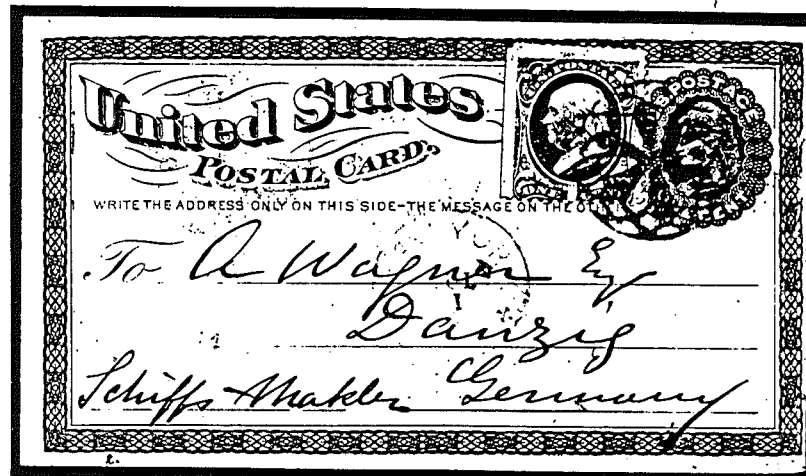 United States
POSTAL CARD.
U.S. POSTAGE
ONE
WRITE THE ADDRESS ONLY ON THIS SIDE-THE MESSAGE ON THE
To A Wagner Esq
Danzig
Schiffs Makler Germany